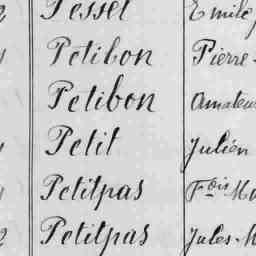 Pesset Emile
Petibon Pierre-
Petibon Amateur
Petit Julien
Petitpas Fois Ma
Petitpas Jules-M